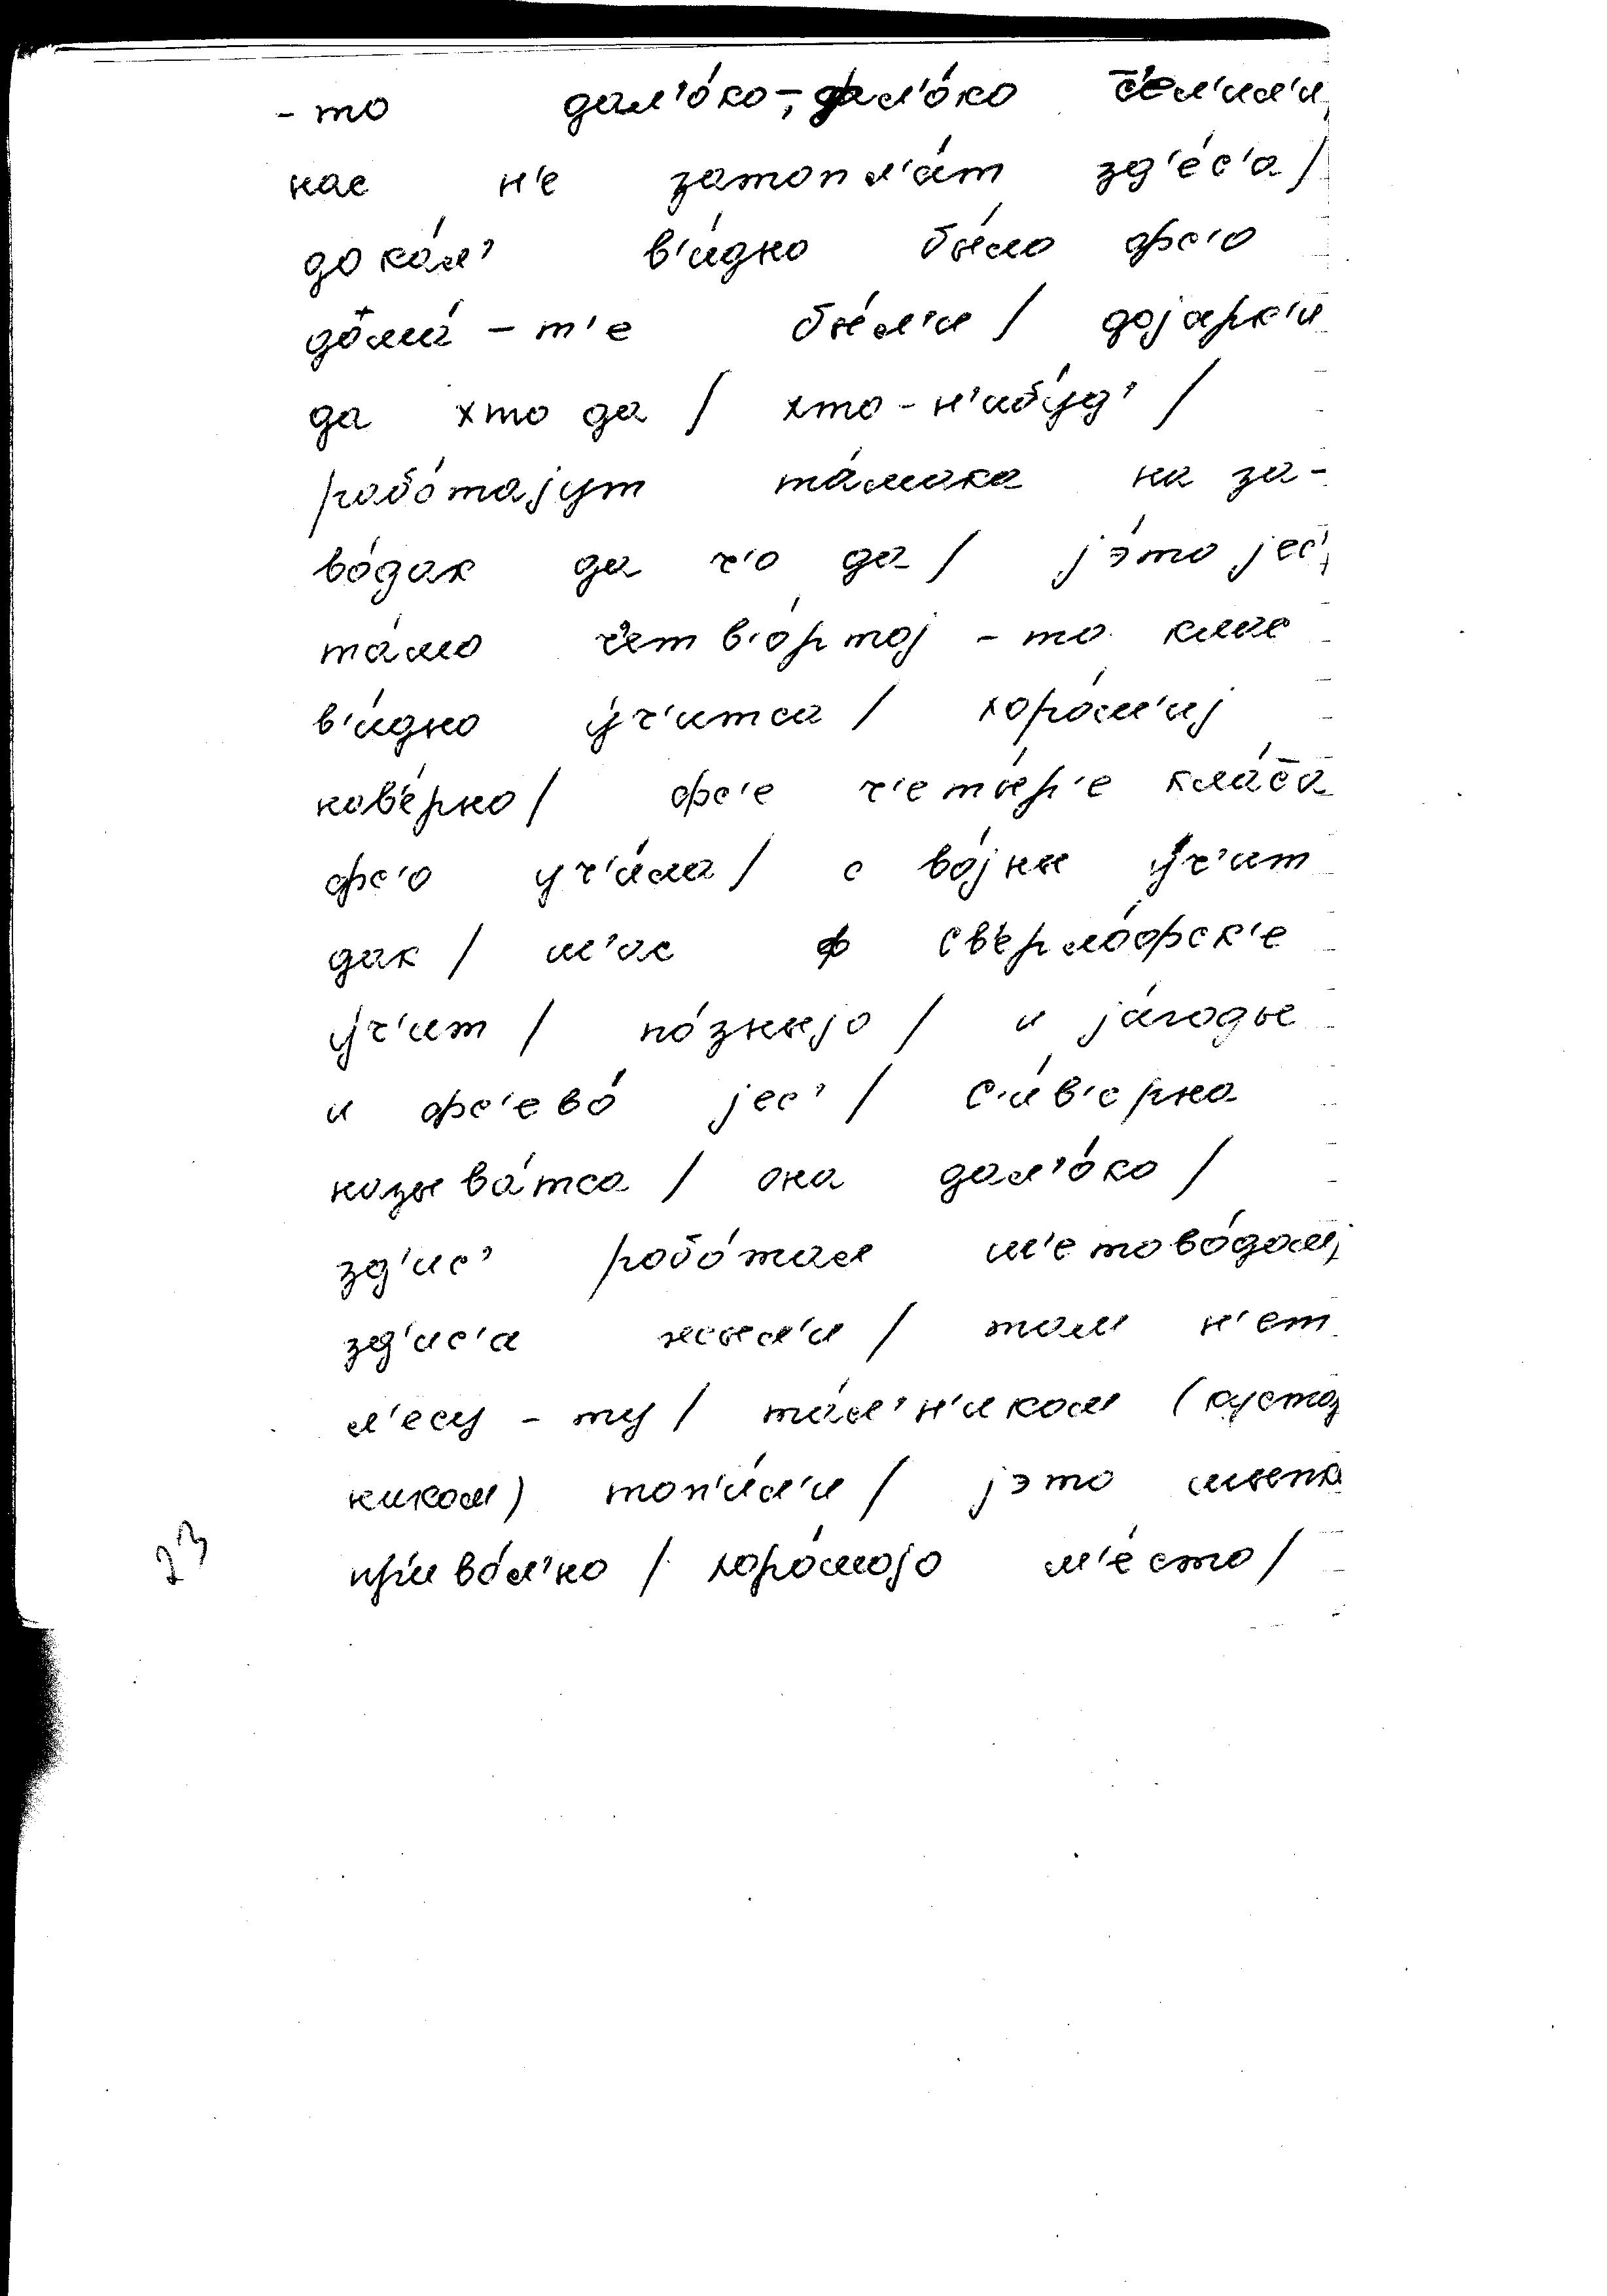 -то дал'о́ко-, дал'о́ко с'ел'ил'и,
нас н'е затопл'а́т зд'е́с'а /
дока́л' в'и́дно бы́ло фс'о
дома́-т'е бы́л'и / дојарк'и
да хто да / хто-н'ибу́д' /
робо́тајут та́мока на за-
во́дах да ч'о да / јэ́то јес',
та́мо ч'етв'о́ртој-то клас
в'и́дно у́ч'итса / хоро́ш'иј
нав'е́рно / фс'е ч'еты́р'е кла́са
фс'о уч'и́ла / с во́јны у́ч'ит
дак / ш'ас ф св'ерлóфск'е
у́ч'ит / по́зныјо / и ја́годы
и фс'ево́ јес' / с'и́в'ерна
называ́тса / она дал'о́ко /
зд'ис' робо́тал ш'етово́дом,
зд'ис'а жыл'и / там н'ет
л'есу-ту / та́л'н'иком (кустар
ником) топ'и́л'и / јэто мыпка
приво́л'но / хоро́шојо м'е́сто /
23